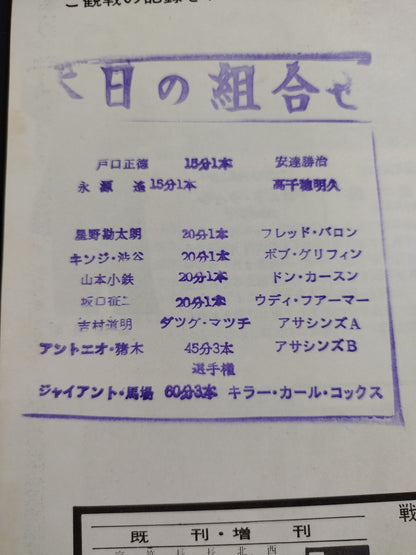 ご観戦の記録を
本日の組合せ
戸口正徳 15分1本 安達勝治
永源遙 15分1本 高千穂明久
星野勘太朗 20分1本 フレッド・バロン
キンジ・渋谷 20分1本 ボブ・グリフィン
山本小鉄 20分1本 ドン・カースン
坂口征二 20分1本 ウディ・フアーマー
吉村道明 ダッグ・マツチ アサシンズA
アントニオ・猪木 45分3本 アサシンズB
選手権
ジャイアント・馬場 60分3本 キラー・カール・コックス
戦
既刊・増刊